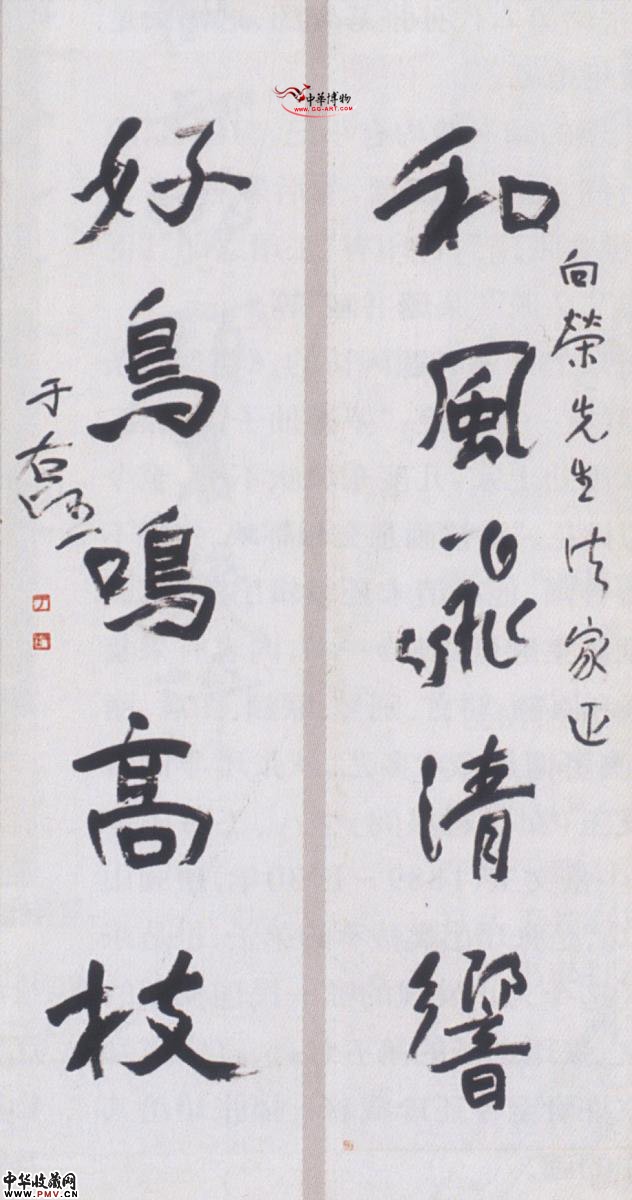 中華博物
WWW.GG-ART.COM
和風飛清響
向榮先生法家正
好鳥鳴高枝
于右任
中华收藏网
WWW.PMV.CN